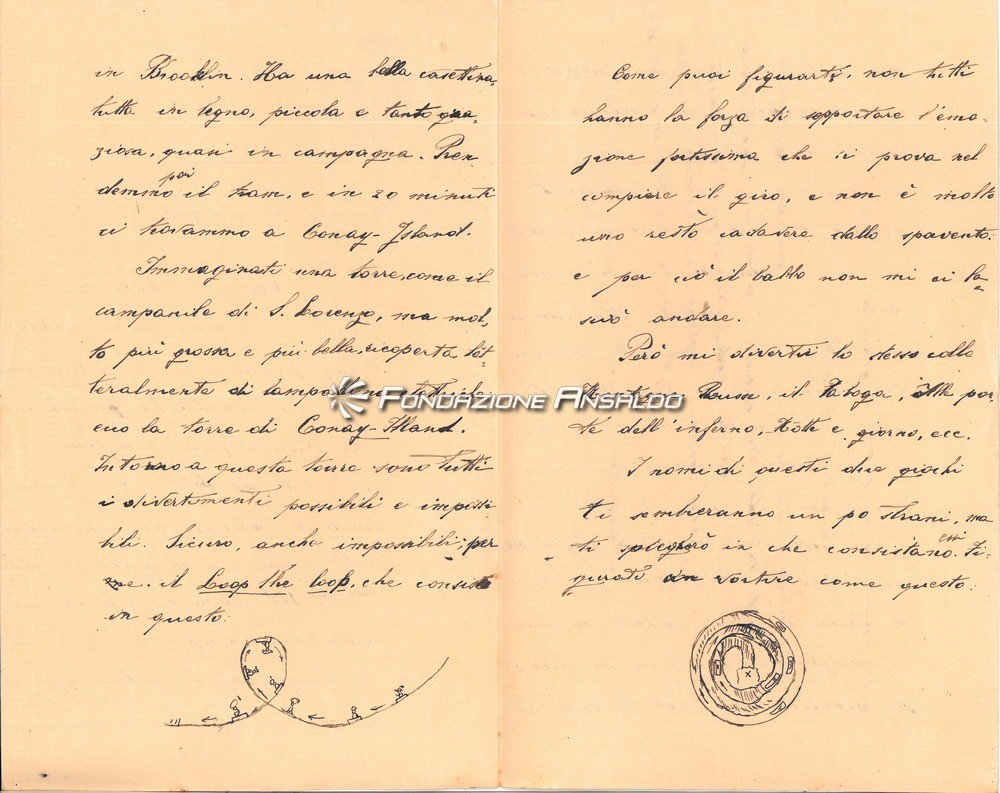 in Brooklin. Ha una bella casettina,
tutta in legno, piccola e tanto gra-
ziosa, quasi in campagna. Pren
demmo poi il tram, e in 20 minuti
ci trovammo a Conay-Island.
Immaginati una torre, come il
campanile di S. Lorenzo, ma mol,
to più grossa e più bella, ricoperta let-
teralmente di lampadine
ecco la torre di Conay-Island.
Intorno a questa torre sono tutti
i divertimenti possibili e impossi
bili. Sicuro, anche impossibili; per
es. il Loop the loop, che consiste
in questo:
Come puoi figurarti, non tutti
hanno la forza di sopportare l'emo-
zione fortissima che si prova nel
compiere il giro, e non è molto
uno restò cadavere dallo spavento:
e per ciò il babbo non mi ci la=
sciò andare.
Però mi divertii lo stesso colle
Russe, il Taboga, Alle por
te dell'inferno, Notte e giorno, ecc.
I nomi di questi due giochi
ti sembreranno un po strani, ma
ti spiegherò in che consistano essi. Fi-
gurati un vortice come questo:
Fondazione Ansaldo